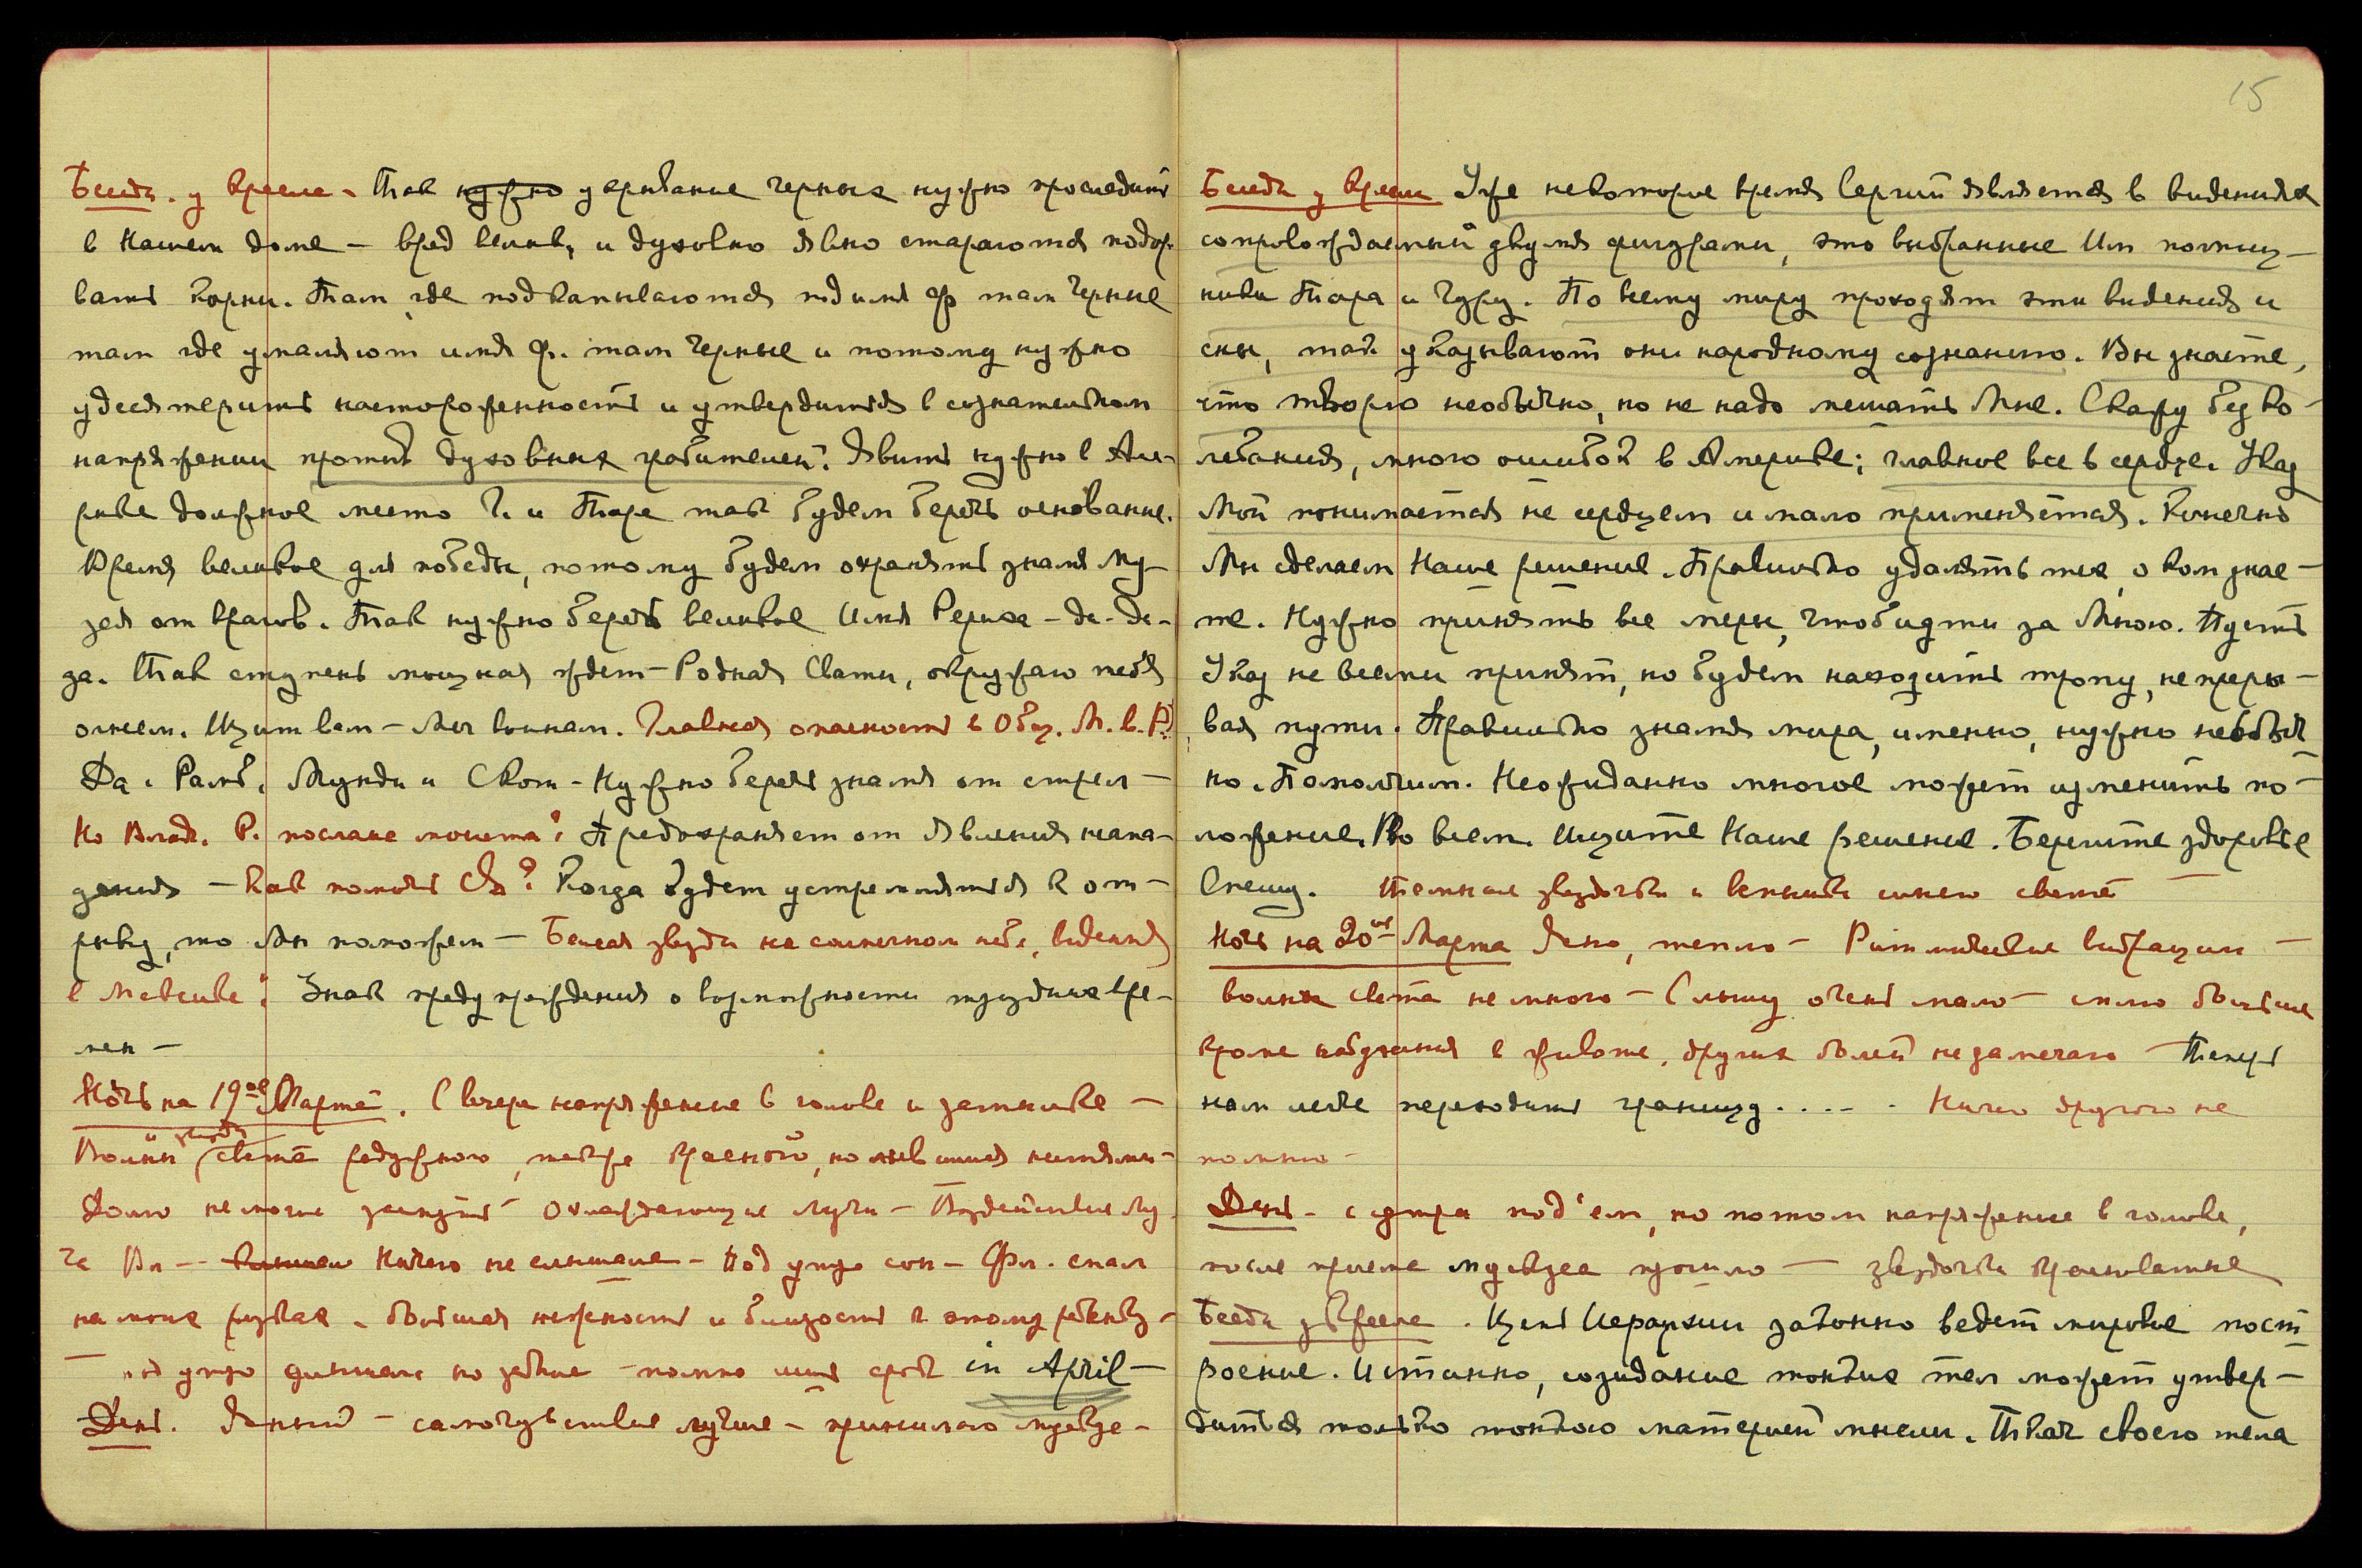 Беседа у кресла – Так нужно укрывание черных нужно проследить
в Нашем доме – вред велик, и духовно явно стараются подор-
вать корни. Там, где подкапываются под имя Ф там черные
там где умаляют имя Ф. там черные и потому нужно
удесятерить настороженность и утвердиться в сознательном
напряжении против духовных грабителей. Явить нужно в Аме-
рике должное место Г. и Таре так будем беречь основание.
Время великое для победы, потому будем охранять знамя Му-
зея от врагов. Так нужно беречь великое Имя Рериха – да-да-
да. Так ступень мощная ждет – Родная Свати, окружаю тебя
огнем. Щит вам – Меч воинам. Главная опасность в Общ. М. в. Р.?
Да. Мунди и Скот – Нужно беречь знамя от стрел –
Но Влад. Р. послано монета? Предохраняет от явления напа-
дения – Как помочь ? Когда будет устремляться к от-
рыву, то Мы поможем – Белая звезда на солнечном небе, виденная
в Мексике? Знак предупреждения о возможности трудных вре-
мен –
Ночь на 19ое Марта. С вечера напряжение в голове и затылке –
Волны света радужного, также красного,
Долго не могла заснуть – Охлаждающие лучи – Воздействие Лу-
ча Вл – Ничего не слышала – Под утро сон – спал
на моих руках – большая нежность и близость к этому ребенку –
– под утро слышала но забыла – помню лишь срок in April –
День. Ясный – самочувствие лучше – принимаю
15
Беседа у кресла Уже некоторое время Сергий является в видениях
сопровождаемый двумя фигурами, это выбранные Им помощ-
ники Тара и Гуру. По всему миру проходят эти видения и
сны, так указывают они народному сознанию. Вы знаете,
что творю необычно, но не надо мешать Мне. Скажу без ко-
лебания, много ошибок в Америке; главное все в сердце. Указ
Мой понимается не сердцем и мало применяется. Конечно
Мы сделаем Наше решение. Правильно удалять тех, о ком знае-
те. Нужно принять все меры, чтоб идти за Мною. Пусть
Указ не всеми принят, но будем находить тропу, не преры-
вая пути. Правильно знамя мира, именно, нужно необыч-
но. Помолчим. Неожиданно многое может изменить по-
ложение. Во всем ищите Наше решение. Берегите здоровье
Спешу. Темные звездочки и вспышки синего света –
Ночь на 20ое Марта Ясно, тепло – Ритмические вибрации –
волны света не много – Слышу очень мало – мало больше
кроме набухания в животе, других болей не замечаю – Теперь
нам легче переходить границу ..... Ничего другого не
помню –
День – с утра под'ем, но потом напряжение в голове,
после приема мускуса прошло – звездочки красноватые
Беседа у кресла. Щит Иерархии законно ведет мировое пост-
роение. Истинно, созидание тонких тел может утвер-
диться только тонкою материей мысли. Ткач своего тела